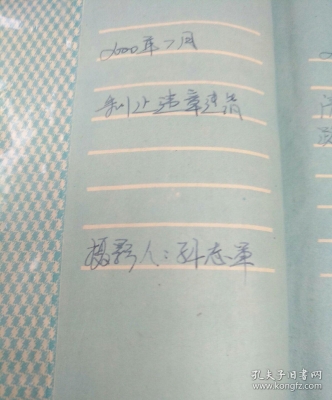 2000年7月
制止违章建筑
摄影人:孙志军
孔夫子旧书网
www.kongfz.com